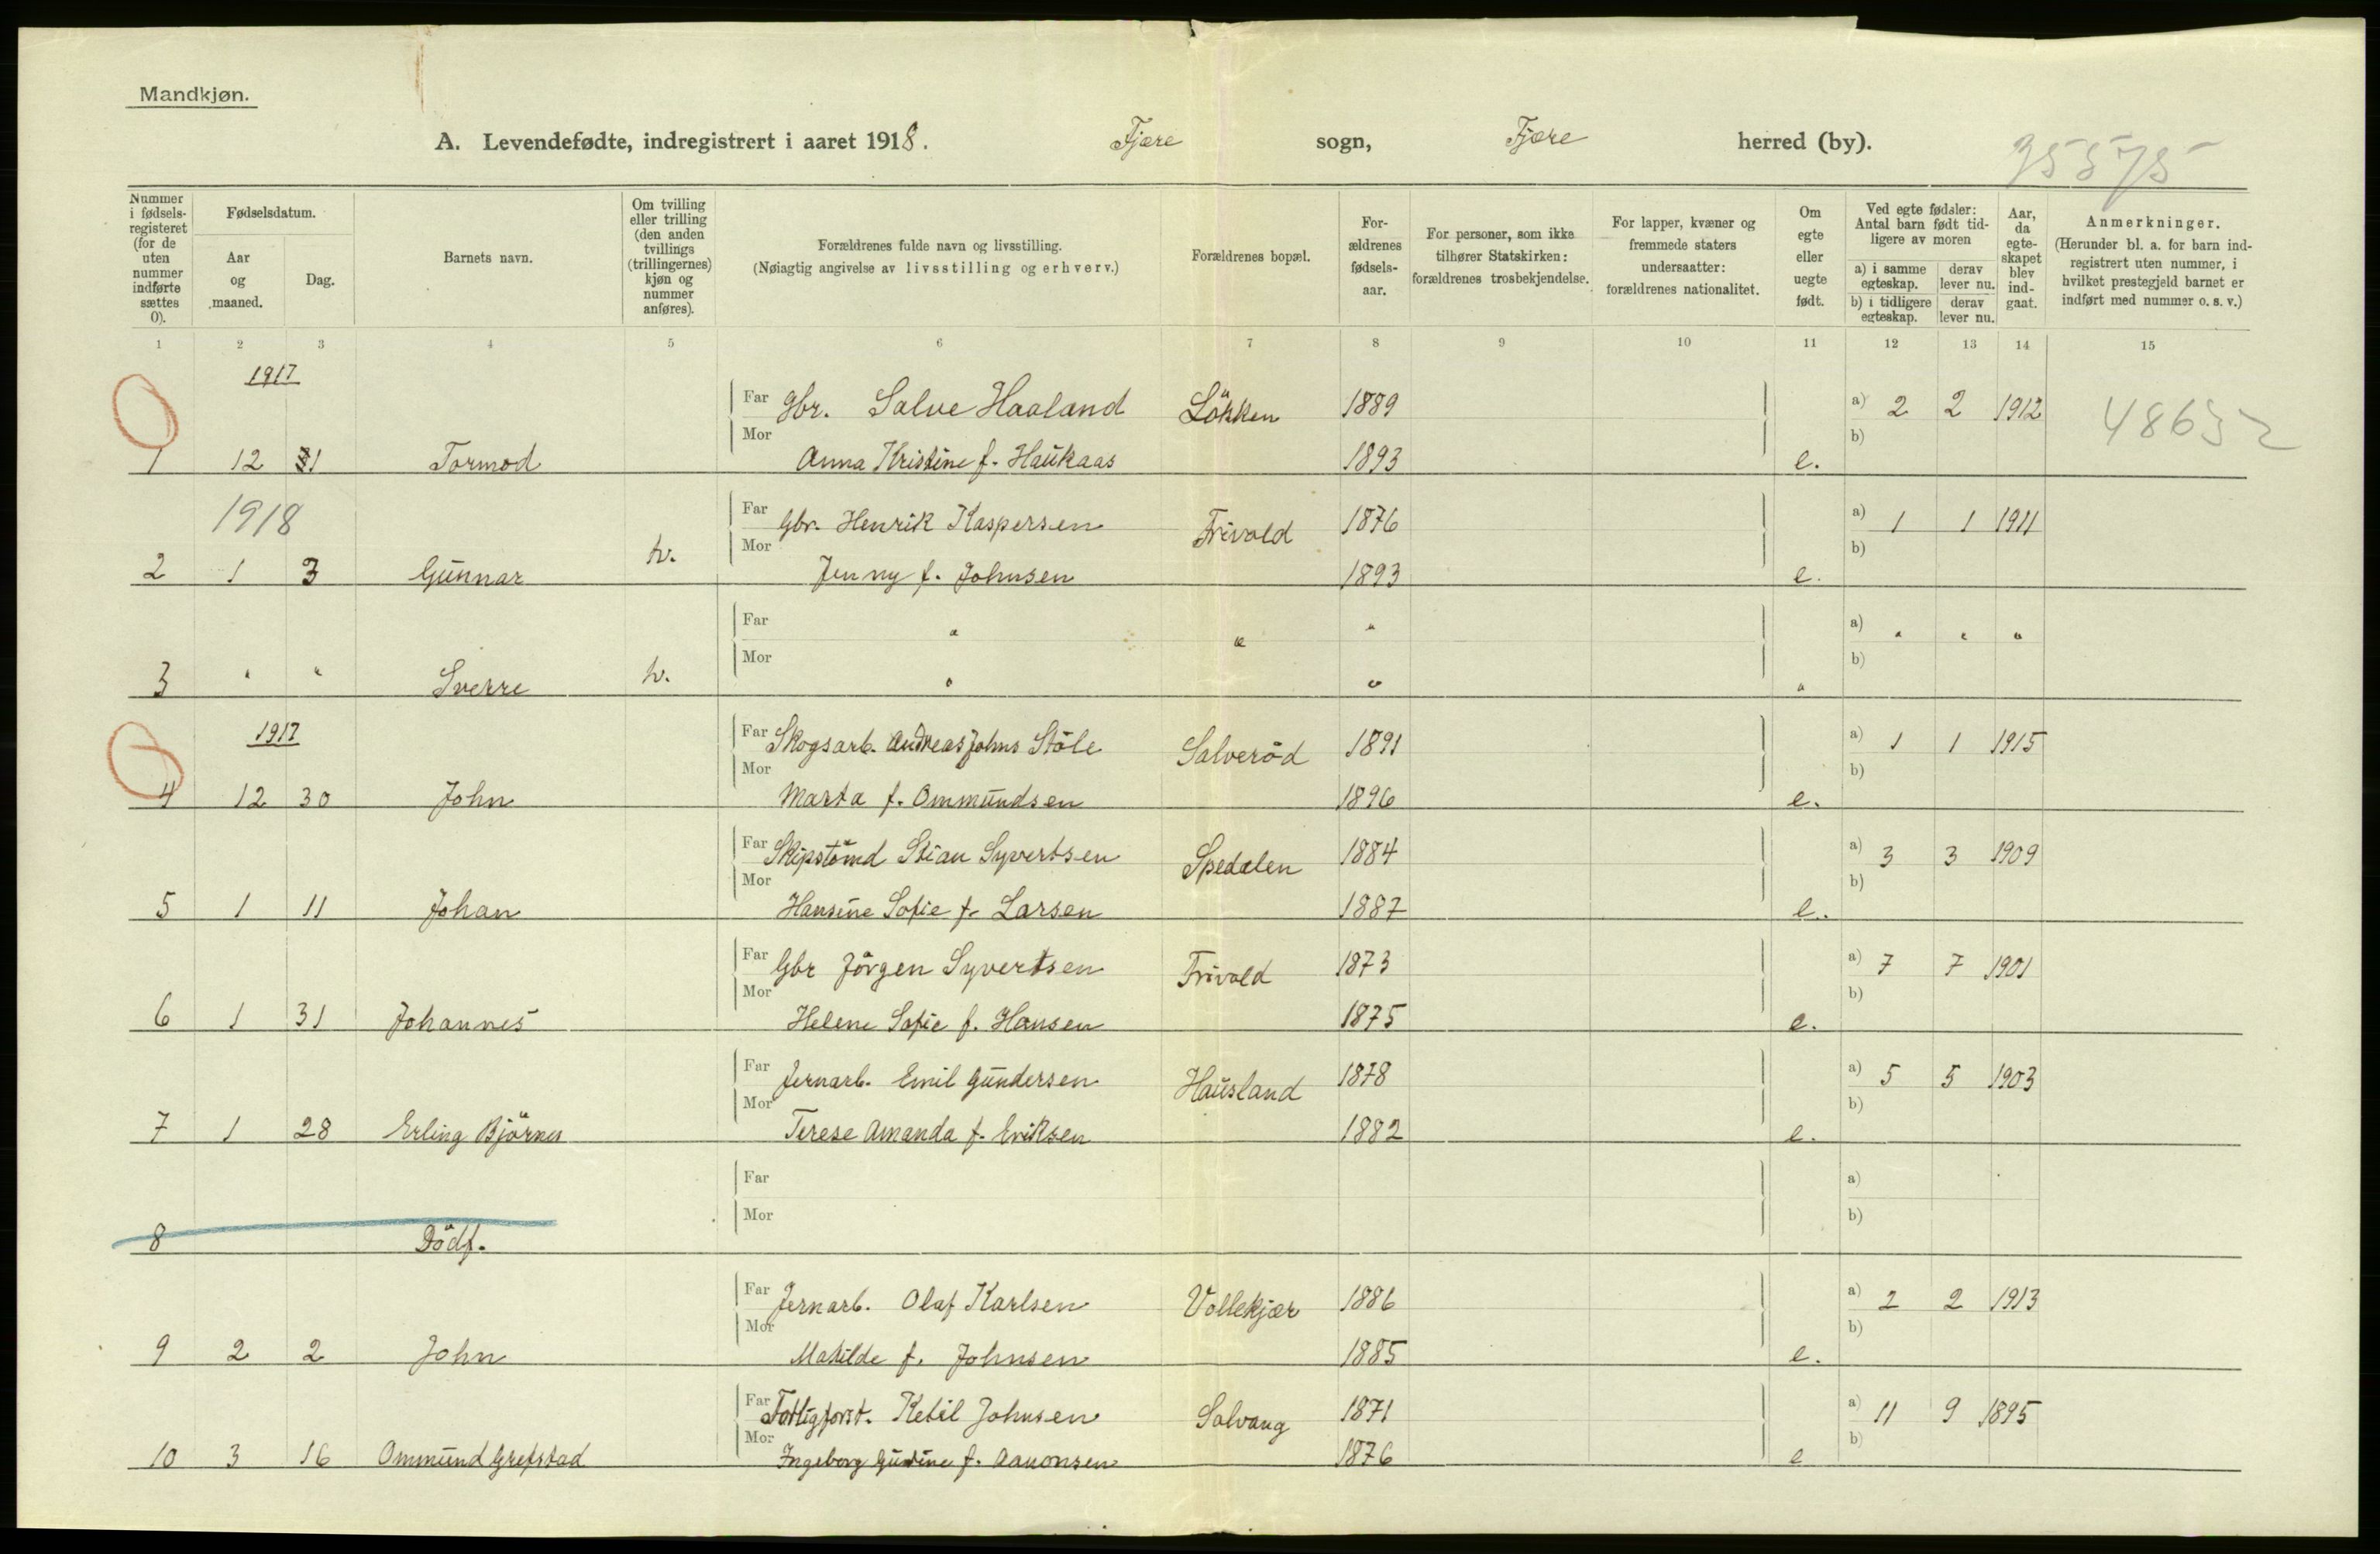 Mandkjøn.
A. Levendefødte, indregistrert i aaret 1918. Fjære sogn, Fjære herred (by).
35575
Nummer i fødsels-registeret (for de uten nummer indførte sættes 0).
Fødselsdatum.
Aar og maaned.
Dag.
Barnets navn.
Om tvilling eller trilling (den anden tvillings (trillingernes) kjøn og nummer anføres).
Forældrenes fulde navn og livsstilling.
(Nøiagtig angivelse av livsstilling og erhverv.)
Forældrenes bopæl.
For-ældrenes fødsels-aar.
For personer, som ikke tilhører Statskirken: forældrenes trosbekjendelse.
For lapper, kvæner og fremmede staters undersaatter: forældrenes nationalitet.
Om egte eller uegte født.
Ved egte fødsler: Antal barn født tid-ligere av moren
a) i samme egteskap. derav lever nu.
b) i tidligere egteskap. derav lever nu.
Aar, da egte-skapet blev ind-gaat.
Anmerkninger.
(Herunder bl. a. for barn ind-registrert uten nummer, i hvilket prestegjeld barnet er indført med nummer o. s. v.)
1 2 3 4 5 6 7 8 9 10 11 12 13 14 15
1917
Far Gbr. Salve Haaland Lökken 1889 a) 2 2 1912 48652
Mor b)
1 12 31 Tormod Anna Kristine f. Haukaas 1893 e.
1918
Far Gbr. Henrik Kaspersen Frivold 1876 a) 1 1 1911
Mor b)
2 1 3 Gunnar tv. Jenny f. Johnsen 1893 e.
Far " " " a) " " "
Mor b)
3 " " Sverre tv. " " "
1917
Far Skogsarb. Andreas Johns Stöle Salveröd 1891 a) 1 1 1915
Mor b)
4 12 30 John Marta f. Ommundsen 1896 e.
Far Skipstömd Stian Syvertsen Spedalen 1884 a) 3 3 1909
Mor b)
5 1 11 Johan Hansine Sofie f. Larsen 1887 e.
Far Gbr Jörgen Syvertsen Frivold 1873 a) 7 7 1901
Mor b)
6 1 31 Johannes Helene Sofie f. Hansen 1875 e.
Far Jernarb. Emil Gundersen Hausland 1878 a) 5 5 1903
Mor b)
7 1 28 Erling Björner Terese Amanda f. Eriksen 1882 e.
Far a)
Mor b)
8 Dödf.
Far Jernarb. Olaf Karlsen Vollekjær 1886 a) 2 2 1913
Mor b)
9 2 2 John Matilde f. Johnsen 1885 e.
Far Fattigforst. Ketil Johnsen Solvang 1871 a) 11 9 1895
Mor b)
10 3 16 Ommund Grefstad Ingeborg Gurine f. Aanonsen 1876 e